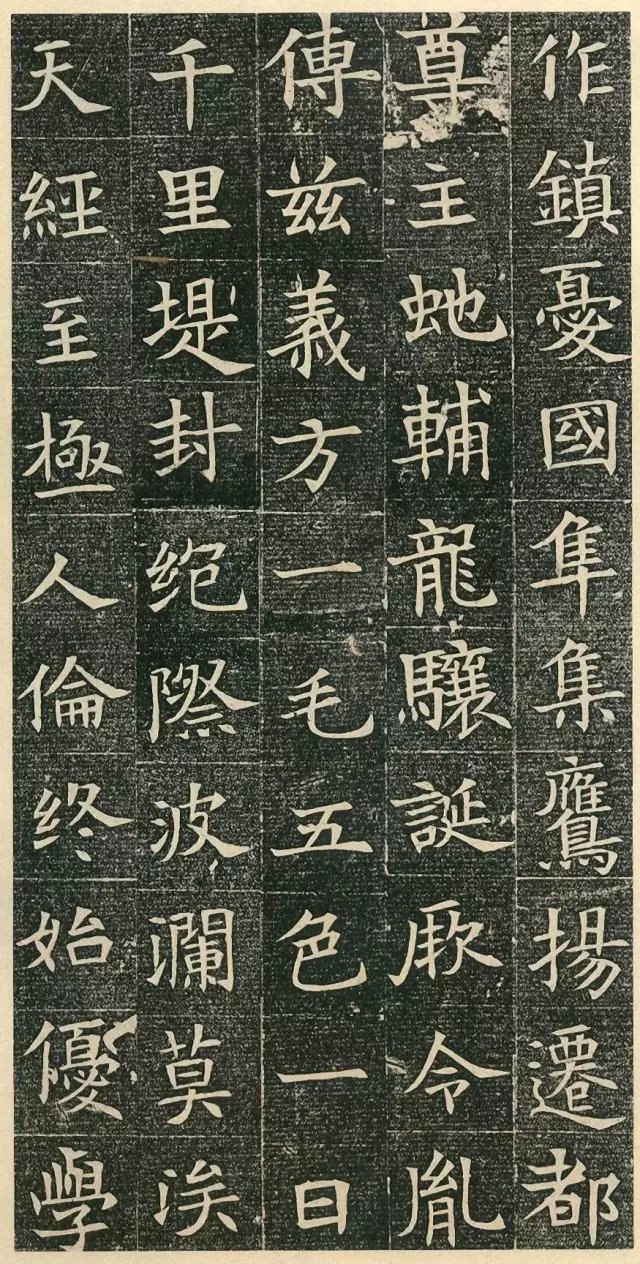 作鎮憂國隼集鷹揚遷都
尊主虵輔龍驤誕厥令胤
傳兹義方一毛五色一日
千里堤封絶際波瀾莫涘
天經至極人倫終始優學